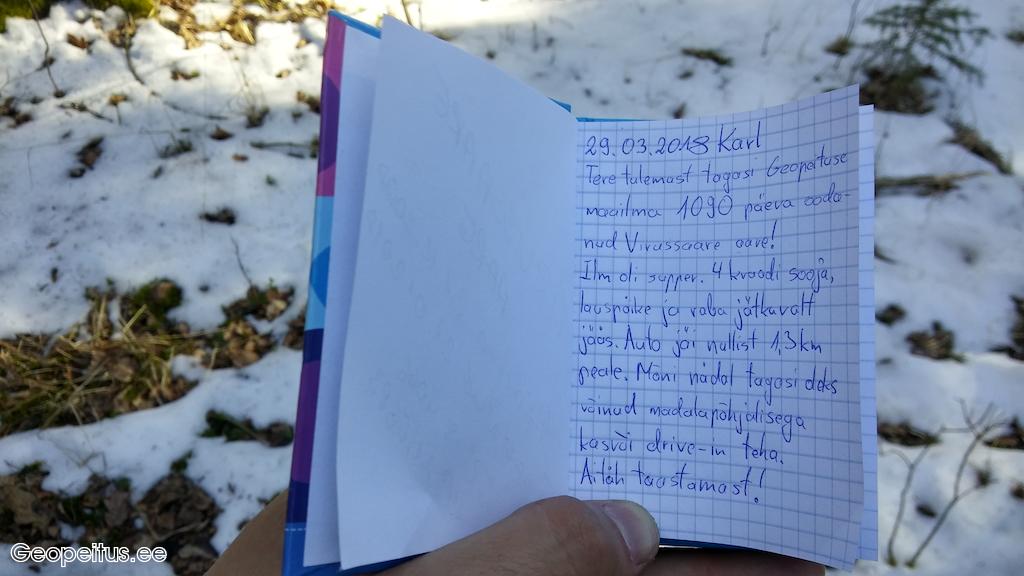 29.03.2018 Karl
Tere tulemast tagasi Geopeituse
maailma 1090 päeva ooda-
nud Virussaare aare!
Ilm oli supper. 4 kraadi sooja,
lauspäike ja raba jätkuvalt
jääs. Auto jäi nullist 1,3km
peale. Mõni nädal tagasi oleks
võinud madalapõhjalisega
kasvõi drive-in teha.
Aitäh taastamast!
Geopeitus.ee